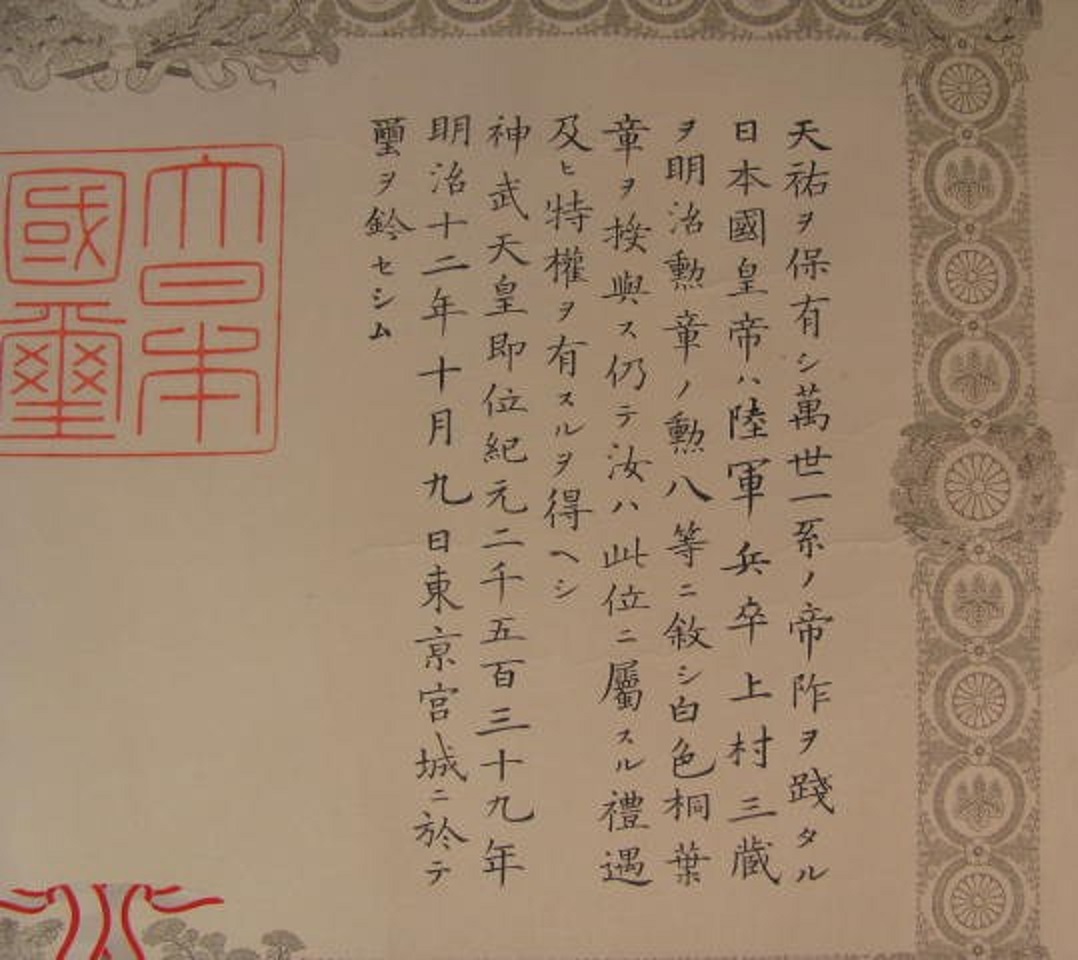 天祐ヲ保有シ萬世一系ノ帝阼ヲ踐タル
日本國皇帝ハ陸軍兵卒上村三蔵
ヲ明治勲章ノ勲八等ニ敘シ白色桐葉
章ヲ授與ス仍テ汝ハ此位ニ屬スル禮遇
及ヒ特權ヲ有スルヲ得ヘシ
神武天皇即位紀元二千五百三十九年
明治十二年十月九日東京宮城ニ於テ
璽ヲ鈐セシム
大日本
國璽